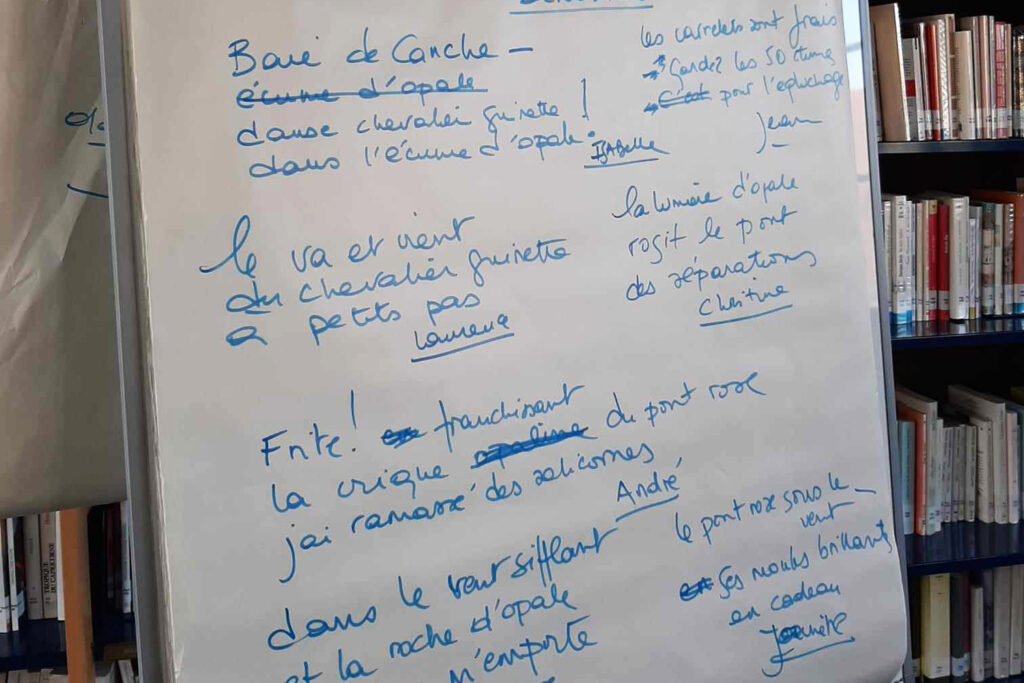 Baie de Canche –
écume d'opale
danse chevalier guinette !
dans l'écume d'opale.
ISABelle
les carrelets sont frais
Gardez les 50 ctimes
C'est pour l'épluchage
Jean
le va et vient
du chevalier guinette
a petits pas
Laurence
la lumière d'opale
rosit le pont
des séparations
Christine
Frite! franchissant
la crique du pont rose
j'ai ramassé des salicornes
André
le pont rose sous le
vent
Ses moules brillants
en cadeau
dans le vent sifflant
et la roche d'opale
m'emporte
TROPIQUE
DU CAPRICORNE